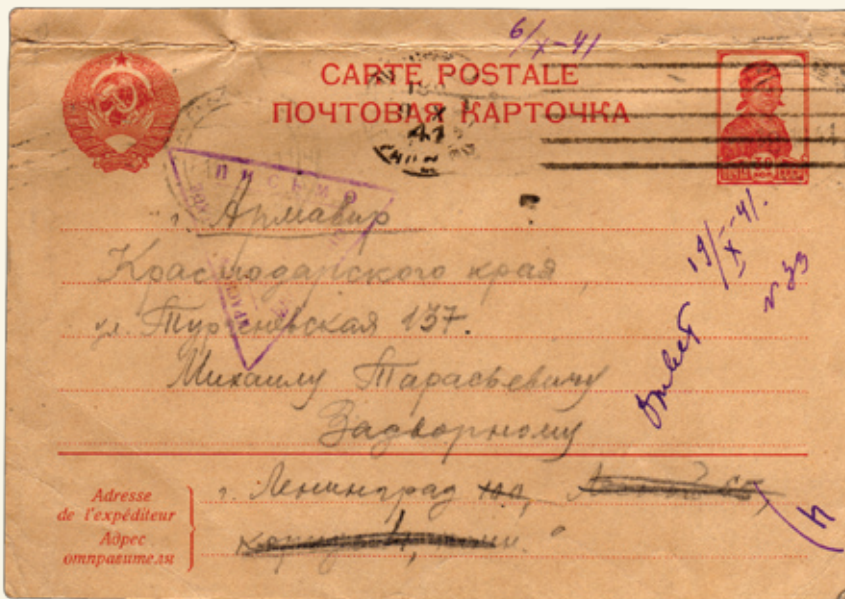 6/X-41
CARTE POSTALE
ПОЧТОВАЯ КАРТОЧКА
ПИСЬМО
г. Армавир
Краснодарского края
ул. Тургеневская 137.
Михаилу Тарасьевичу
Задворному
Ответ 19/X-41.
N 33
Adresse
de l'expéditeur
Адрес
отправителя
г. Ленинград